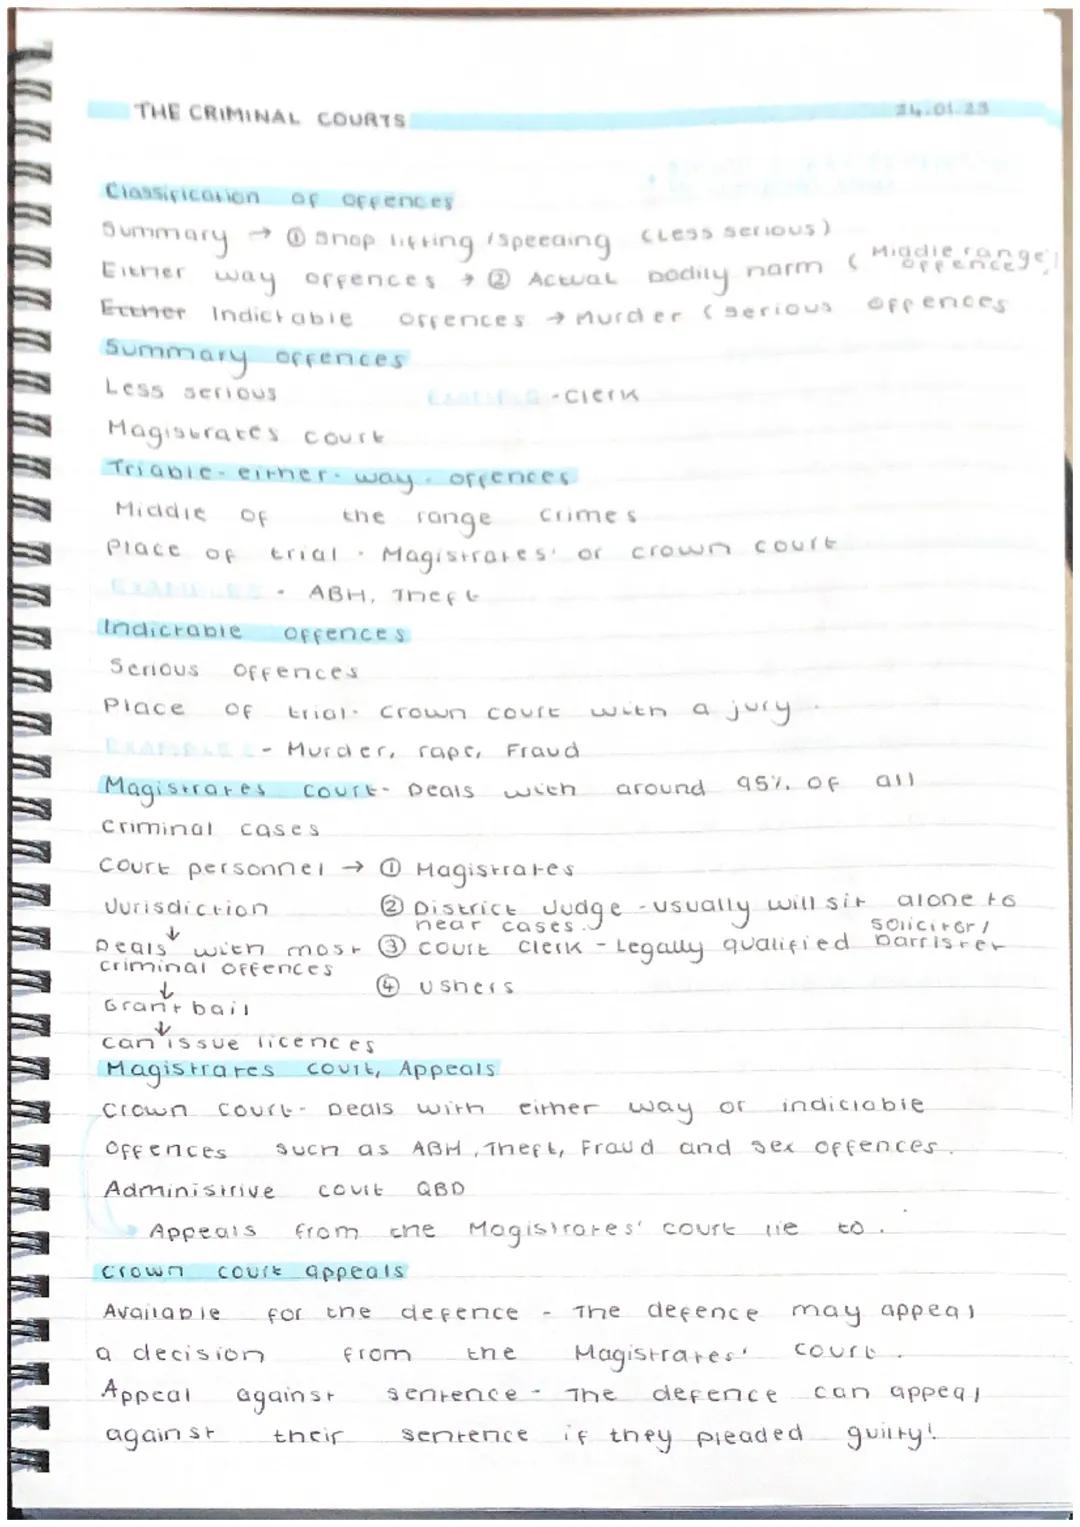 THE CRIMINAL COURTS 24.01.23
Classification of offences
Summary → ① Shop lifting / speeding (Less serious)
Either way offences → ② Actual bodily harm (Middle range offences)
Either Indictable offences → Murder (serious offences
Summary offences
Less serious EXAMPLE - Clerk
Magistrates court
Triable-either-way-offences
Middle of the range crimes
Place of trial - Magistrates' or crown court
EXAMPLES - ABH, Theft
Indictable offences
Serious offences
Place of trial - crown court with a jury.
EXAMPLES - Murder, rape, Fraud
Magistrates court - Deals with around 95% of all
criminal cases
Court personnel → ① Magistrates
Jurisdiction ② District Judge - usually will sit alone to
hear cases.
↓
Deals with most ③ court clerk - Legally qualified solicitor/ barrister
criminal offences
↓ ④ ushers
Grant bail
↓
can issue licences
Magistrates court, Appeals
Crown Court - Deals with either way or indictable
Offences such as ABH, Theft, Fraud and sex offences.
Administrive court QBD
Appeals from the Magistrates' court lie to.
Crown court appeals
Available for the defence - The defence may appeal
a decision from the Magistrates' court.
Appeal against sentence - The defence can appeal
against their sentence if they pleaded guilty!